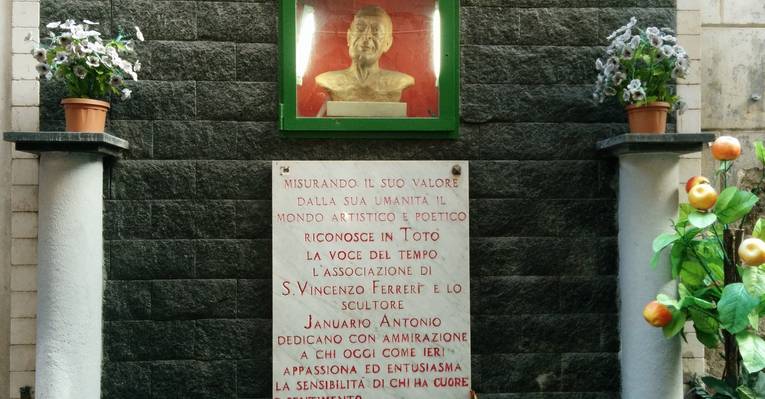 MISURANDO IL SUO VALORE
DALLA SUA UMANITÀ IL
MONDO ARTISTICO E POETICO
RICONOSCE IN TOTÒ
LA VOCE DEL TEMPO
L'ASSOCIAZIONE DI
S.VINCENZO FERRERI E LO
SCULTORE
JANUARIO ANTONIO
DEDICANO CON AMMIRAZIONE
A CHI OGGI COME IERI
APPASSIONA ED ENTUSIASMA
LA SENSIBILITÀ DI CHI HA CUORE
E SENTIMENTO